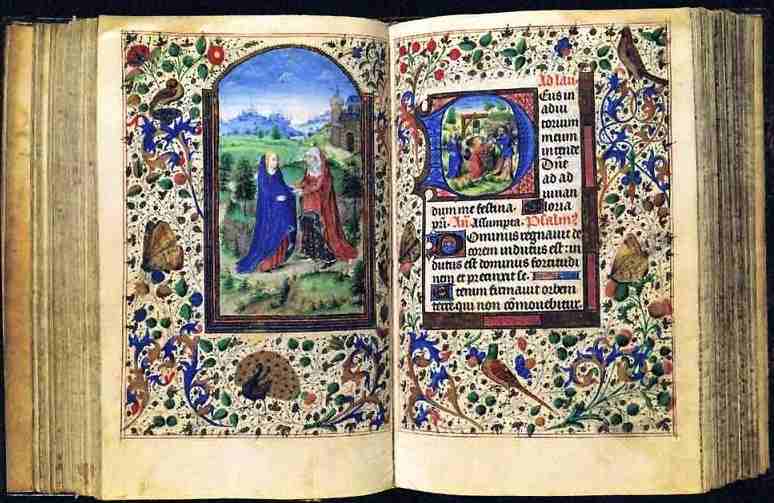 Ad lau
Deus in
adiu
torium
meum
intende
Dn̄e
ad ad
iuuan
dum me festina. Gloria
pr̄i. An̄ Assumpta. Psalm⁹
Dominus regnauit de
corem indutus est: in
dutus est dominus fortitudi
nem et precinxit se.
Etenim firmauit orbem
terre qui non cōmouebitur.